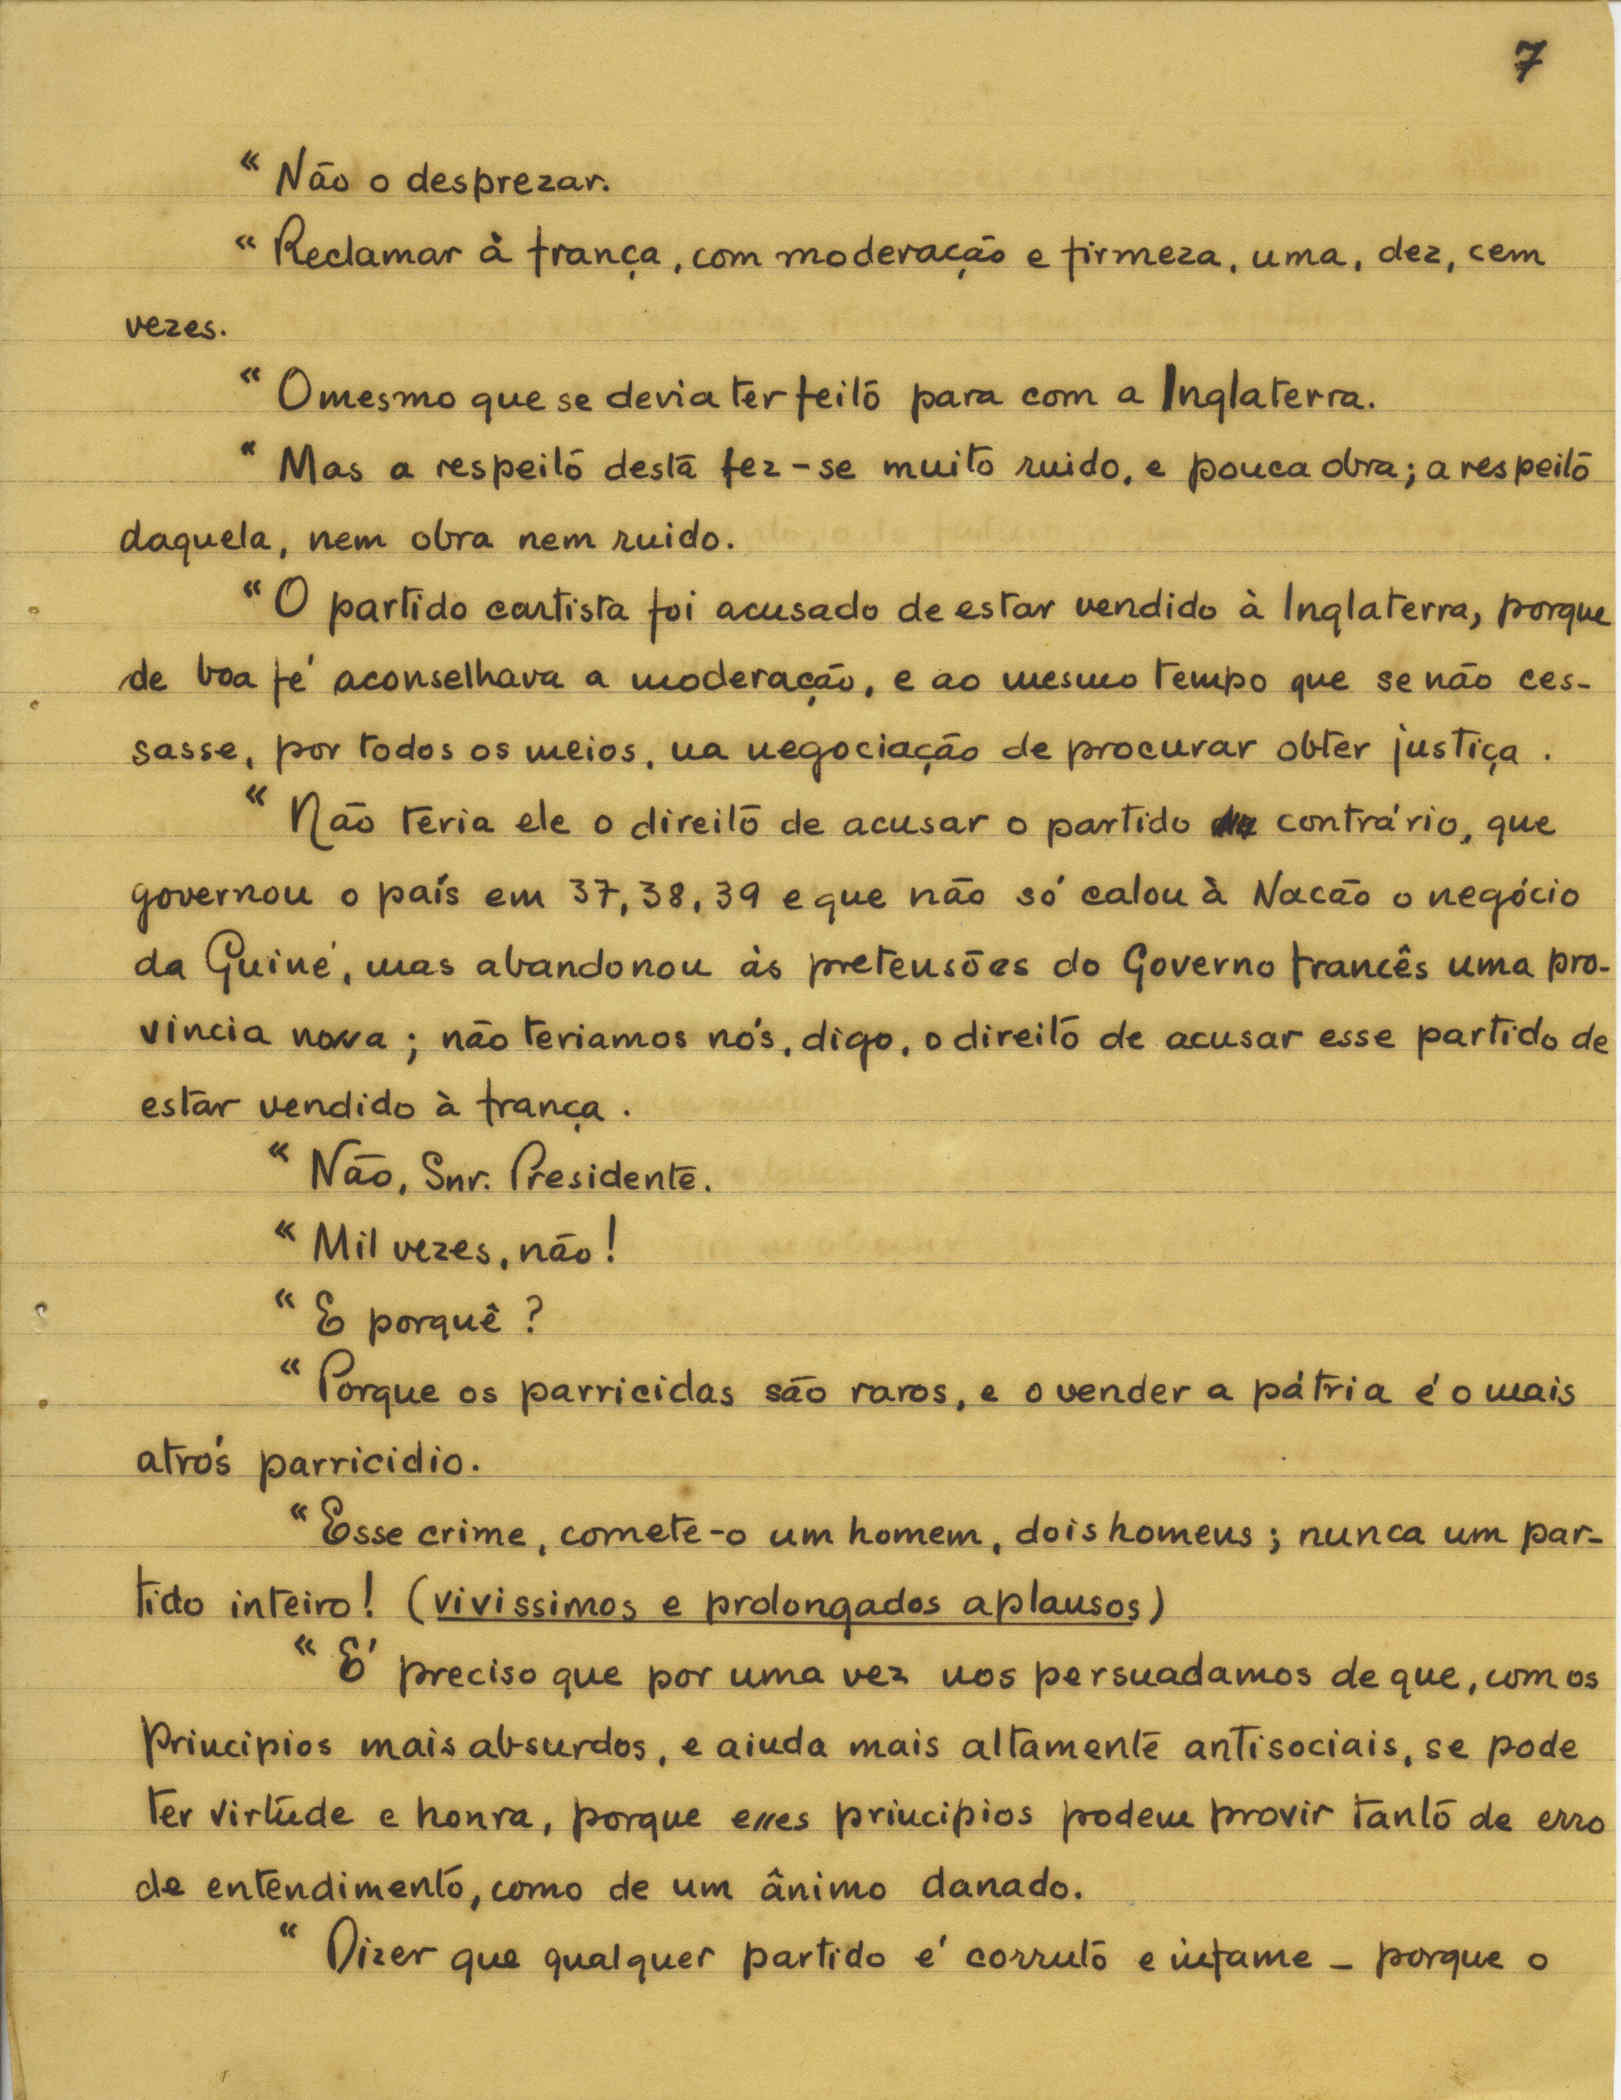 7
"Não o desprezar.
"Reclamar à frança, com moderação e firmeza, uma, dez, cem
vezes.
"O mesmo que se devia ter feito para com a Inglaterra.
"Mas a respeito desta fez-se muito ruido, e pouca obra; a respeito
daquela, nem obra nem ruido.
"O partido cartista foi acusado de estar vendido à Inglaterra, porque
de boa fé aconselhava a moderação, e ao mesmo tempo que se não ces-
sasse, por todos os meios, na negociação de procurar obter justiça.
"Não teria ele o direito de acusar o partido contrário, que
governou o país em 37, 38, 39 e que não só calou à Nacão o negócio
da Guiné, mas abandonou às pretensões do Governo francês uma pro-
vincia nossa; não teriamos nós, digo, o direito de acusar esse partido de
estar vendido à frança.
"Não, Snr. Presidente.
"Mil vezes, não!
"E porquê?
"Porque os parricidas são raros, e o vender a pátria é o mais
atrós parricidio.
"Esse crime, comete-o um homem, dois homens; nunca um par-
tido inteiro! (vivissimos e prolongados aplausos)
"É preciso que por uma vez nos persuadamos de que, com os
principios mais absurdos, e ainda mais altamente antisociais, se pode
ter virtude e honra, porque esses principios podem provir tanto de erro
de entendimento, como de um ânimo danado.
"Dizer que qualquer partido é corruto e infame - porque o